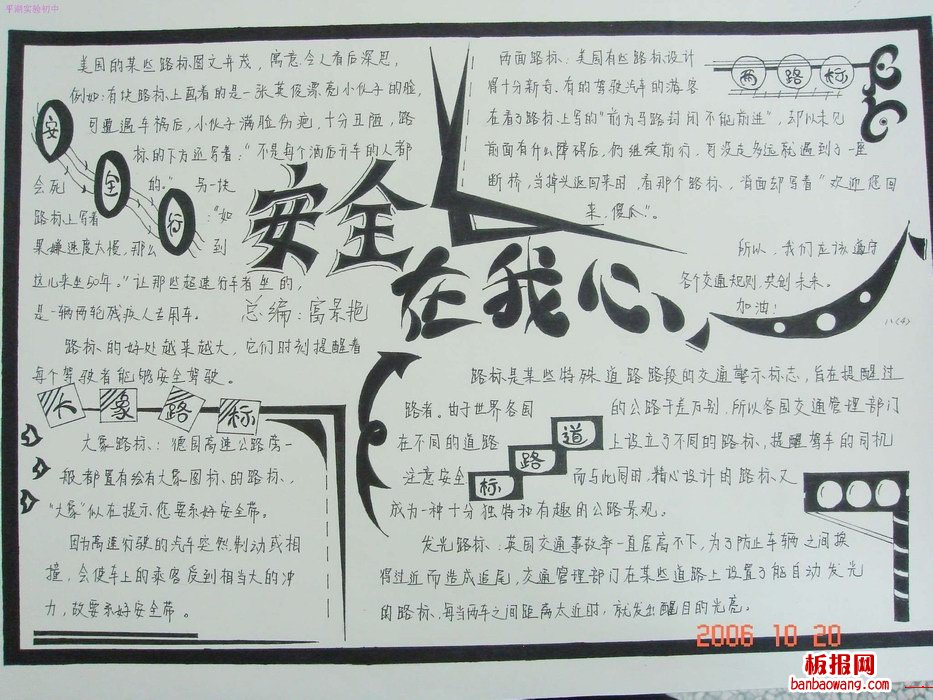 平湖实验初中
美国的某些路标图文并茂，寓意令人看后深思，
例如:有块路标上画着的是一张英俊漂亮小伙子的脸，
可遭遇车祸后，小伙子满脸伤疤，十分丑陋，路
标的下方还写着："不是每个酒后开车的人都
会死的。"另一块
路标上写着："如
果嫌速度太慢，那么到
这儿来坐50年。"让那些超速行车者坐的，
是一辆两轮残疾人专用车。
路标的好处越来越大，它们时刻提醒着
每个驾驶者能够安全驾驶。
安全行
安全
在我心
总编:富景艳
两路标
两面路标：美国有些路标设计
得十分新奇，有的驾驶汽车的游客
在看了路标上写的"前方马路封闭不能前进"，却以未见
前面有什么障碍后，仍继续前行，可没走多远就遇到了一座
断桥，当掉头返回来时，看那个路标，背面却写着"欢迎您回
来，傻瓜"。
所以，我们应该遵守
各个交通规则，共创未来。
加油！
八(4)
大象路标
大象路标：德国高速公路旁一
般都置有绘有大象图标的路标，
"大象"似在提示您要系好安全带。
因为高速行驶的汽车突然制动或相
撞，会使车上的乘客受到相当大的冲
力，故要系好安全带。
道路标
路标是某些特殊道路路段的交通警示标志，旨在提醒过
路者。由于世界各国的公路千差万别，所以各国交通管理部门
在不同的道路上设立了不同的路标，提醒驾车的司机
注意安全而与此同时，精心设计的路标又
成为一种十分独特和有趣的公路景观。
发光路标：英国交通事故率一直居高不下，为了防止车辆之间挨
得过近而造成追尾，交通管理部门在某些道路上设置了能自动发光
的路标，每当两车之间距离太近时，就发出醒目的光亮。
2006 10 20
板报网
banbaowang.com